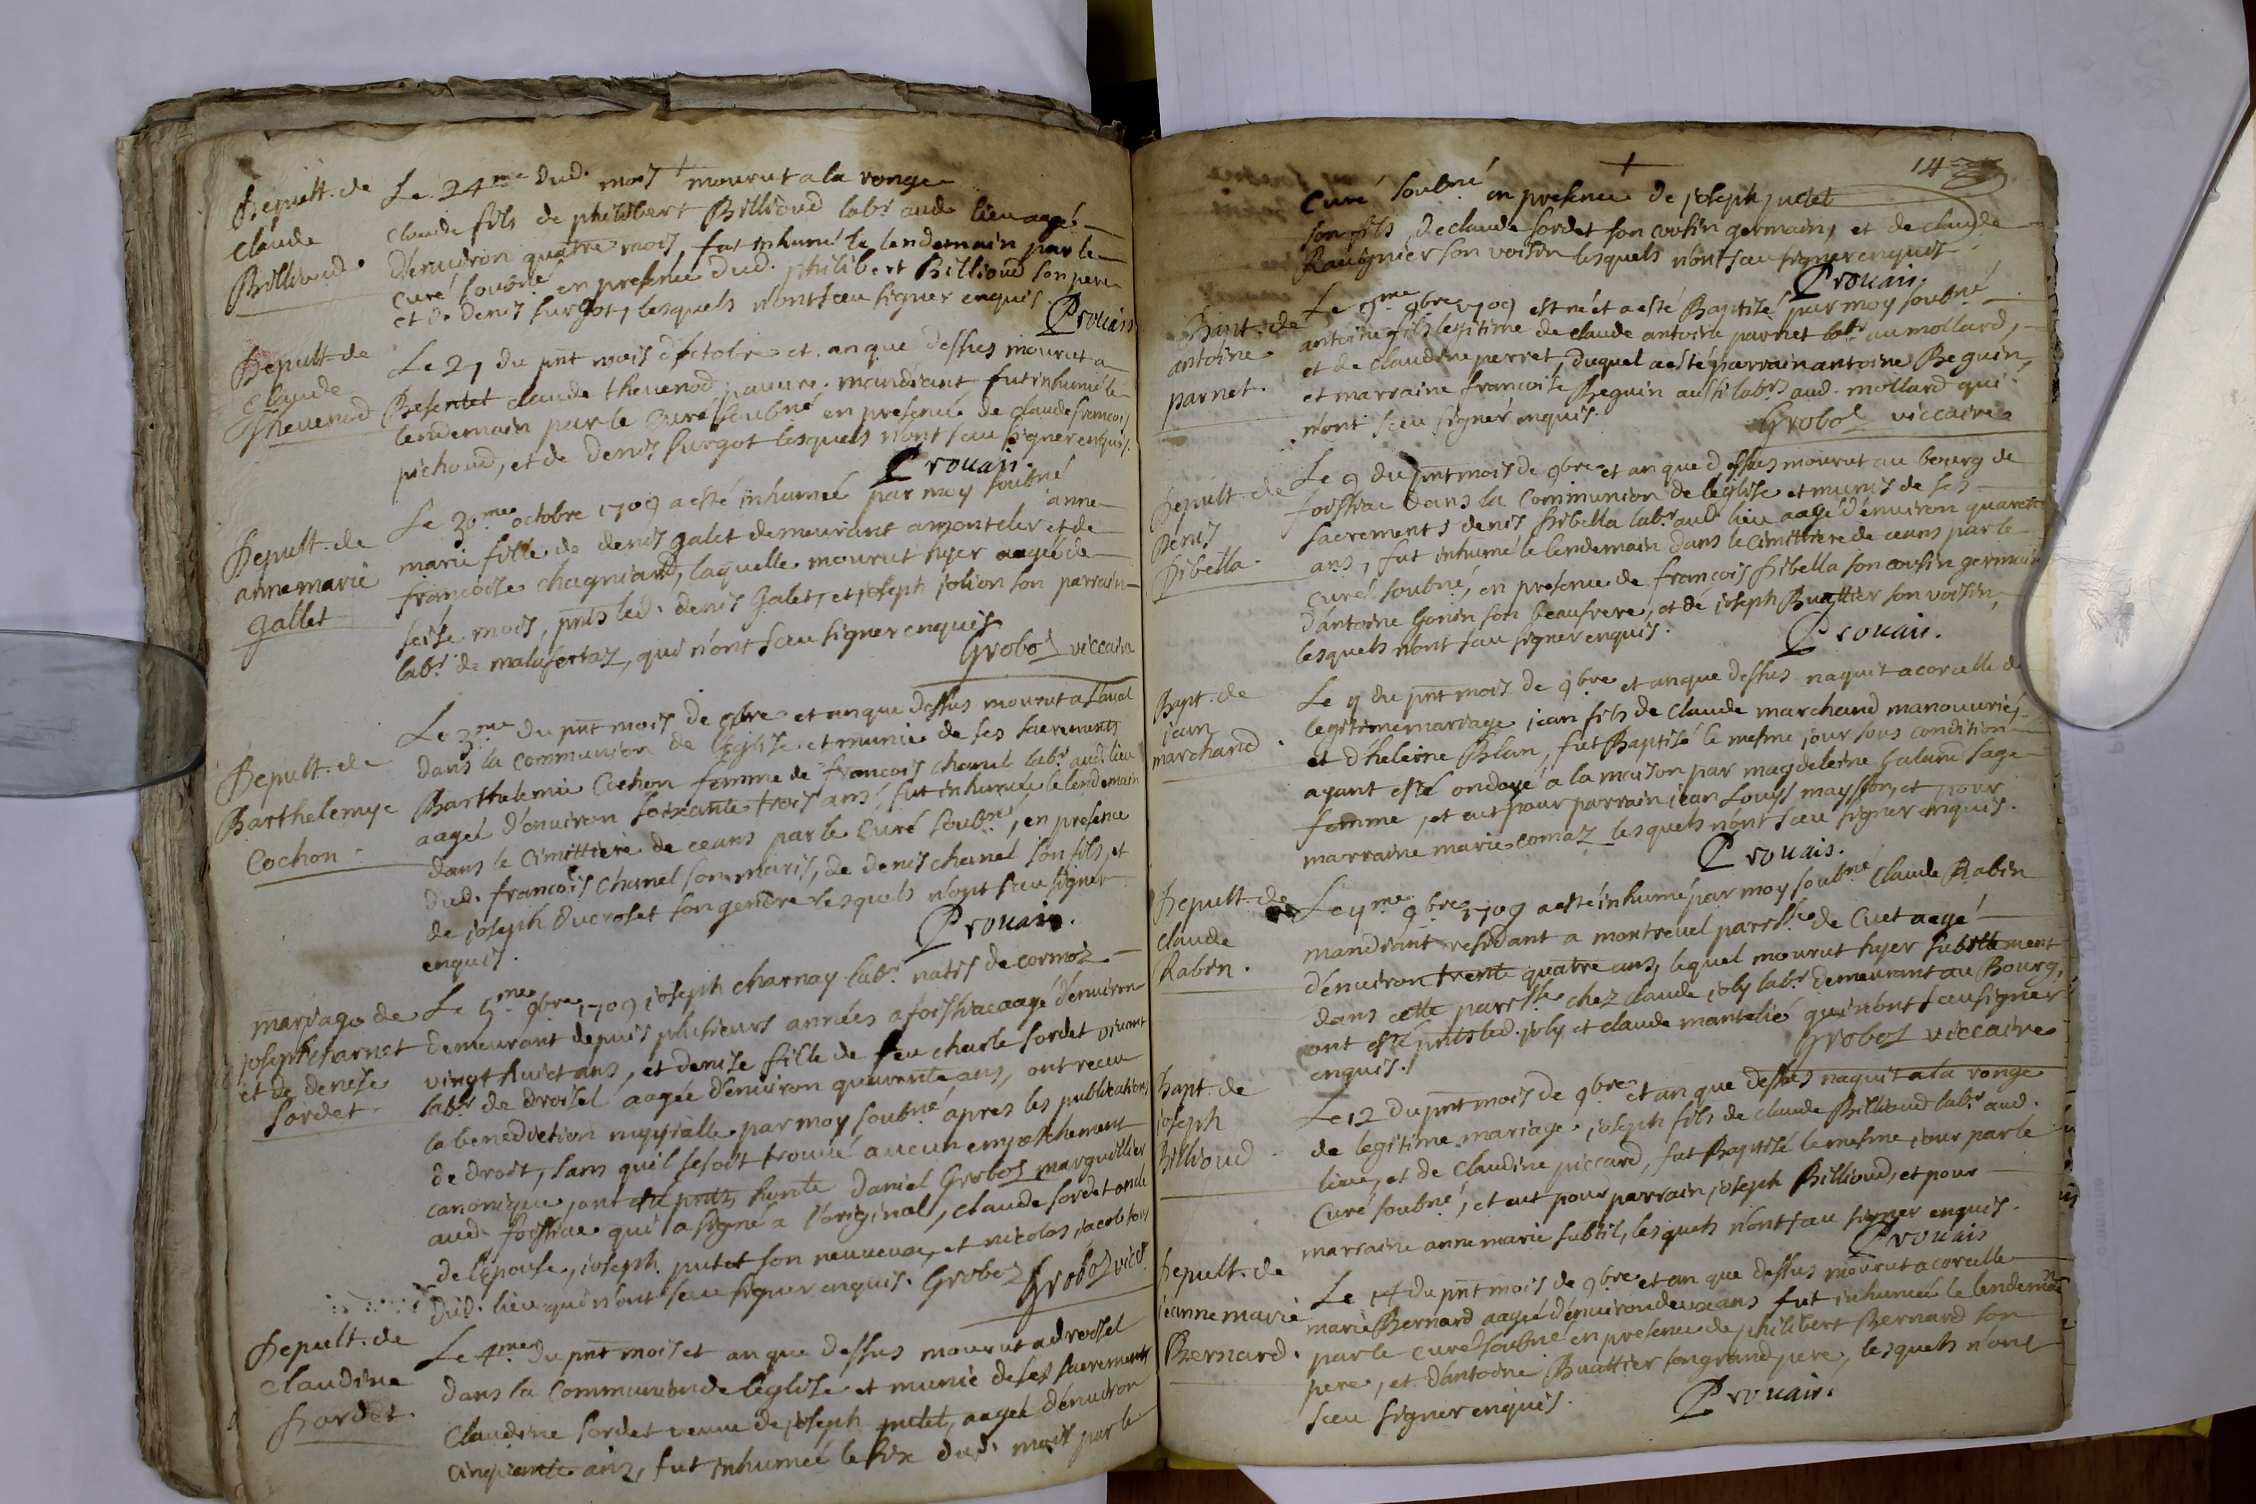 Sepult. de
Claude
Billioud.
Le 24me dud. mois mourut a la ronge
Claude fils de philibert Billioud labr. aud. lieu aagé
d'environ quatre mois, fut inhumé le lendemain par le
curé soubné en presence dud. philibert Billioud son pere
et de denis surgot, lesquels n'ont sceu signer enquis.
Prouais
Sepult. de
Claude
Thevenod
Le 27 du pnt mois d'octobre et an que dessus mourut a
Besentet claude thevenod pauvre mandiant, fut inhumé le
lendemain par le curé soubné en presence de claude francois
pichoud, et de denis surgot lesquels n'ont sceu signer enquis.
Prouais.
Sepult. de
anne marie
gallet
Le 30me octobre 1709 a esté inhumée par moy soubné anne
marie fille de denis galet demeurant a montceler et de
francoise chagniard, laquelle mourut hyer aagée de
seise mois, pnts led. denis galet, et joseph jolion son parrain
labr. de malafertaz, qui n'ont sceu signer enquis
Groboz viccaire
Sepult. de
Barthelemye
Cochon.
Le 3me du pnt mois de 9bre et an que dessus mourut a Laval
dans la communion de l'église et munie de ses sacrements
Barthelemie Cochon femme de francois chanel labr. aud. lieu
aagée d'environ soixante trois ans, fut inhumée le lendemain
dans le cimittiere de ceans par le curé soubné, en presence
dud. francois chanel son maris, de denis chanel son fils, et
de joseph ducroset son gendre lesquels n'ont sceu signer
enquis.
Prouais.
mariage de
joseph charnet
et de denise
Sordet.
Le 5me 9bre 1709 joseph charnay labr. natif de cormoz
demeurant depuis plusieurs années a foissiac aagé d'environ
vingt huict ans, et denise fille de feu charle sordet vivant
labr. de droisel aagée d'environ quarente ans, ont receu
la benediction nuptialle par moy soubné apres les publications
de droit, sans qu'il se soit trouvé aucun empeschement
canonique, ont esté pnts hunte daniel Groboz marguillier
aud. foissiac qui a signé a l'original, claude sordet oncle
de l'epouse, joseph putet son neuveux, et nicolas jacob tous
dud. lieu qui n'ont sceu signer enquis. Groboz Groboz vicc.
Sepult. de
claudine
Sordet.
Le 4me du pnt mois et an que dessus mourut a droisel
dans la communion de l'église et munie de ses sacrements
Claudine sordet veuve de joseph putet, aagée d'environ
cinquante ans, fut inhumée le six dud. mois par le
14
curé soubné en presence de joseph putet
son fils, de claude sordet son cousin germain, et de claude
Ravignier son voisin lesquels n'ont sceu signer enquis
Prouais.
Bapt. de
antoine
parnet.
Le 9me 9bre 1709 est né et a esté Baptisé par moy soubné
antoine fils legitime de claude antoine parnet labr. au mollard,
et de claudine perret, duquel a esté parrain antoine Beguin,
et marraine francoise Beguin aussi labrs aud. mollard qui
n'ont sceu signer enquis.
Groboz viccaire
Sepult. de
Denis
Sibella.
Le 9 du pnt mois de 9bre et an que dessus mourut au bourg de
foissiac dans la communion de l'église et munis de ses
sacrements denis sibella labr. aud. lieu aagé d'environ quarente
ans, fut inhumé le lendemain dans le cimittiere de ceans par le
curé soubné, en presence de francois sibella son cousin germain
d'antoine Gonin son beaufrere, et de joseph Buattier son voisin,
lesquels n'ont sceu signer enquis.
Prouais.
Bapt. de
jean
marchand.
Le 9 du pnt mois de 9bre et an que dessus naquit a corcelle de
legitime mariage jean fils de claude marchand manouvrié,
et d'heleine Blan, fut Baptisé le mesme jour sous condition
ayant esté ondoyé a la maison par magdeleine galand sage
femme, et eut pour parrain jean Louys maysson, et pour
marraine marie comaz lesquels n'ont sceu signer enquis.
Prouais.
Sepult. de
claude
Rabin.
Le 9me 9bre 1709 a esté inhumé par moy soubné Claude Rabin
mandiant residant a montrevel parsse de Cuet aagé
d'environ trente quatre ans, lequel mourut hyer subittement
dans cette parsse chez claude joly labr. demeurant au Bourg,
ont esté pnts led. joly et claude mantelié qui n'ont sceu signer
enquis.
Groboz viccaire
Bapt. de
joseph
Billioud
Le 12 du pnt mois de 9bre et an que dessus naquit a la ronge
de legitime mariage joseph fils de claude Billioud labr. aud.
lieu, et de claudine piccard, fut Baptisé le mesme jour par le
Curé soubné, et eut pour parrain joseph Billioud, et pour
marraine anne marie subtil, lesquels n'ont sceu signer enquis.
Prouais
Sepult. de
jeanne marie
Bernard.
Le 14 du pnt mois de 9bre et an que dessus mourut a corcelle
marie Bernard aagée d'environ deux ans fut inhumée le lendemain
par le curé soubné en presence de philibert Bernard son
pere, et d'antoine Buattier son grand pere, lesquels n'ont
sceu signer enquis.
Prouais.